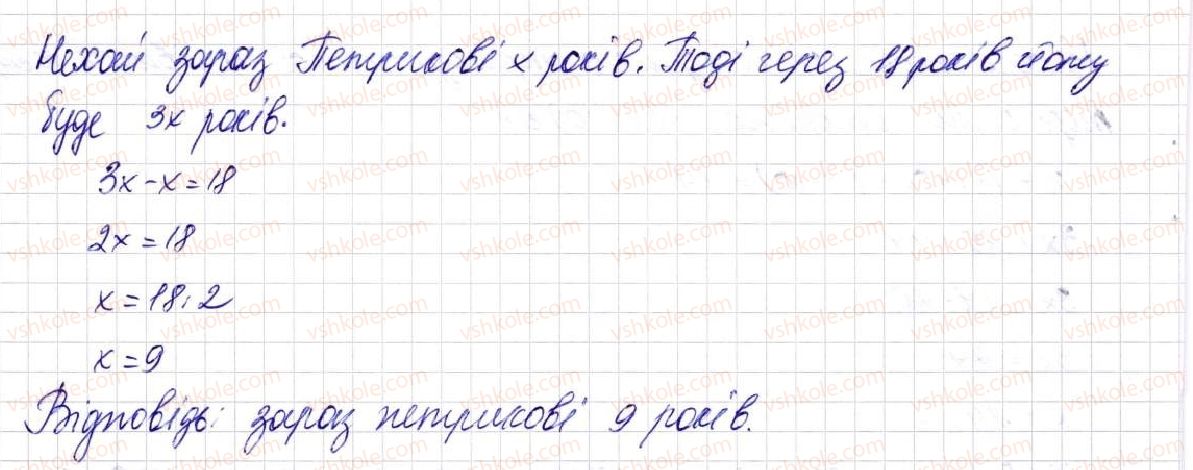 Нехай зараз Петрикові x років. Тоді через 18 років йому
буде 3x років.
3x-x=18
2x=18
x=18:2
x=9
Відповідь: зараз петрикові 9 років.